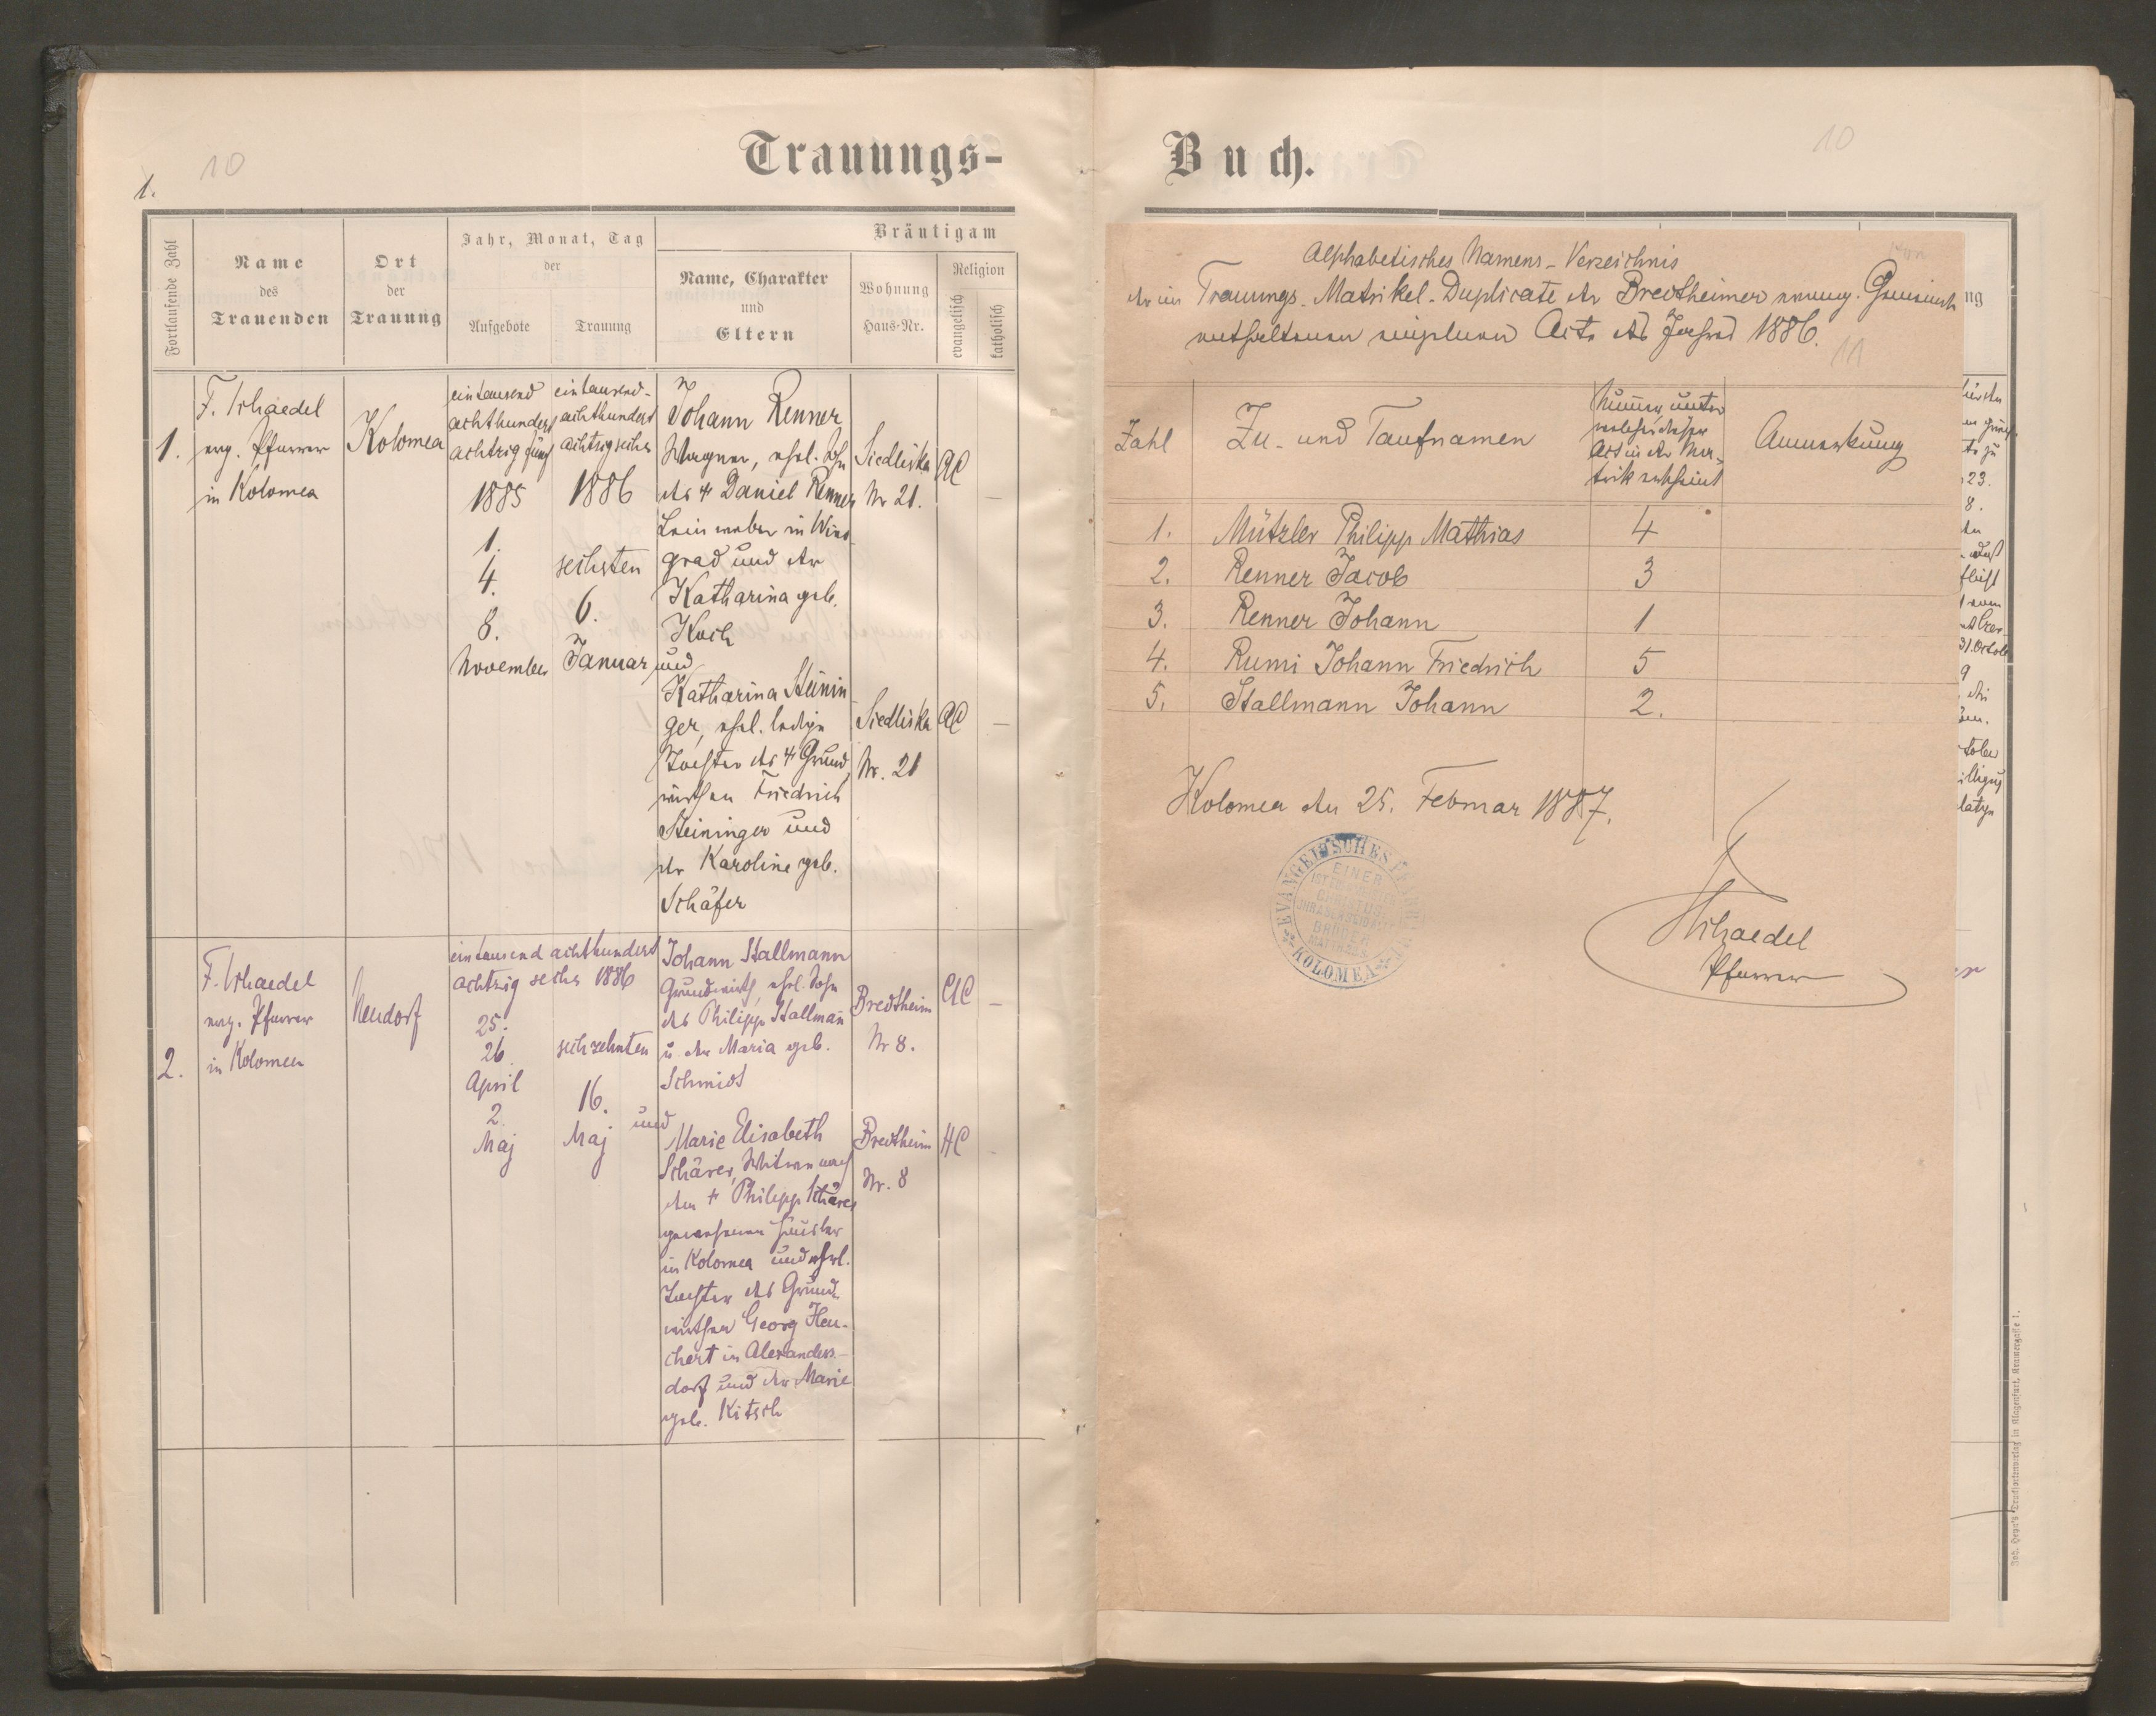 10
1.
Trauungs-
Fortlaufende Zahl
Name
des
Trauenden
Ort
der
Trauung
Jahr, Monat, Tag
der
Aufgebote
Trauung
Bräutigam
Name, Charakter
und
Eltern
Wohnung
Haus-Nr.
Religion
evangelisch
katholisch
1.
F. Schaedel
evg. Pfarrer
in Kolomea
Kolomea
eintausend
achthundert
achtzig fünf
1885
1.
4.
8.
November
eintausend-
achthundert
achtzig sechs
1886
sechsten
6.
Januar
Johann Renner
Wagner, ehel. Sohn
des † Daniel Renner
Leinweber in Wino-
grad und der
Katharina geb.
Koch
und
Siedliska
Nr 21.
AC
–
Katharina Steinin
ger, ehel. ledige
Tochter des † Grund
wirthen Friedrich
Steininger und
der Karoline geb.
Schäfer
Siedliska
Nr. 21
AC
–
2.
F. Schaedel
evg. Pfarrer
in Kolomea
Neudorf
eintausend achthundert
achtzig sechs 1886
25.
26.
April
2.
Maj
sechzehnten
16.
Maj
Johann Stallmann
Grundwirth, ehel. Sohn
des Philipp Stallmañ
u. der Maria geb.
Schmidt
und
Bredtheim
Nr 8.
AC
–
Marie Elisabeth
Schärer, Witwe nach
dem † Philipp Schärer
gewesenen Häusler
in Kolomea und ehel.
Tochter des Grund-
wirthen Georg Heu-
chert in Alexanders-
dorf und der Marie
geb. Kitsch
Bredtheim
Nr. 8
HC
Buch.
10
Alphabetisches Namens-Verzeichnis
der im Trauungs-Matrikel-Duplicate der Bredtheimer evang. Gemeinde
enthaltenen einzelnen Acte des Jahres 1886.
11
Zahl
Zu- und Taufnamen
Numer, unter
welcher dieser
Act in der Ma-
trik erscheint
Anmerkung
1. Mützler Philipp Mathias 4
2. Renner Jacob 3
3. Renner Johann 1
4. Rumi Johann Friedrich 5
5. Stallmann Johann 2.
Kolomea den 25. Februar 1887.
EVANGELISCHES
EINER
CHRISTUS
BRÜDER
KOLOMEA
Schaedel
Pfarrer
ng
23.
8.
31. Octob
9
Joh. Heyn's Drucksortenverlag in Klagenfurt, Kramergasse 1.